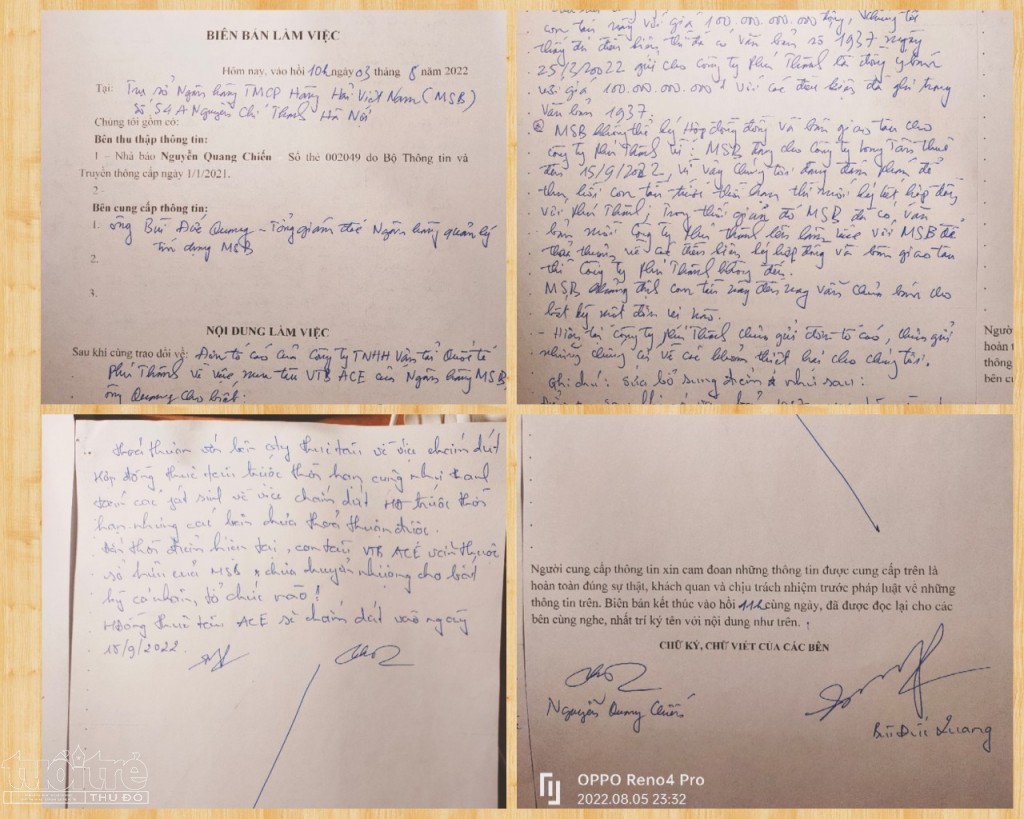 BIÊN BẢN LÀM VIỆC
Hôm nay, vào hồi 10h ngày 03 tháng 8 năm 2022
Tại: Trụ sở Ngân hàng TMCP Hàng Hải Việt Nam (MSB)
Số 54A Nguyễn Chí Thanh Hà Nội
Chúng tôi gồm có:
Bên thu thập thông tin:
1 – Nhà báo Nguyễn Quang Chiến – Số thẻ 002049 do Bộ Thông tin và
Truyền thông cấp ngày 1/1/2021.
2 -
Bên cung cấp thông tin:
1. Ông Bùi Đức Quang – Tổng giám đốc Ngân hàng quản lý
tín dụng MSB
2.
3.
NỘI DUNG LÀM VIỆC
Sau khi cùng trao đổi về: Đơn tố cáo của Công ty TNHH Vận tải Quốc tế
Phú Thành về việc mua tàu VTB ACE của Ngân hàng MSB,
ông Quang cho biết:
con tàu này với giá 100.000.000.000 đồng, chúng tôi
thấy đủ điều kiện thì đã có văn bản số 1937 ngày
25/3/20022 gửi cho Công ty Phú Thành là đồng ý bán
với giá 100.000.000.000đ với các điều kiện đã ghi trong
văn bản 1937.
MSB không thể ký Hợp đồng và bàn giao tàu cho
Công ty Phú Thành vì: MSB đang cho Công ty Long Tân thuê
đến 15/9/2022, vì vậy chúng tôi đang đàm phán để
thu hồi con tàu trước thời hạn thì mới ký kết hợp đồng
với Phú Thành; Trong thời gian đó MSB đã có văn
bản mời Công ty Phú Thành lên làm việc với MSB để
thỏa thuận về các điều kiện ký hợp đồng và bàn giao tàu
thì Công ty Phú Thành không đến.
MSB khẳng định con tàu này đến nay vẫn chưa bán cho
bất kỳ một đơn vị nào.
- Hiện tại Công ty Phú Thành chưa gửi đơn tố cáo, chưa gửi
những chứng cứ về các khoản thiệt hại cho chúng tôi.
Ghi chú: Sửa bổ sung điểm 2 như sau:
Ngườ
hoàn t
thông
bên c
thoả thuận với bên cty thuê tàu về việc chấm dứt
Hợp đồng thuê tàu trước thời hạn cũng như thanh
toán các phát sinh về việc chấm dứt HĐ trước thời
hạn nhưng các bên chưa thoả thuận được.
Đến thời điểm hiện tại, con tàu VTB ACE vẫn thuộc
sở hữu của MSB, chưa chuyển nhượng cho bất
kỳ cá nhân, tổ chức nào!
HĐồng thuê tàu ACE sẽ chấm dứt vào ngày
15/9/2022.
Người cung cấp thông tin xin cam đoan những thông tin được cung cấp trên là
hoàn toàn đúng sự thật, khách quan và chịu trách nhiệm trước pháp luật về những
thông tin trên. Biên bản kết thúc vào hồi 11h cùng ngày, đã được đọc lại cho các
bên cùng nghe, nhất trí ký tên với nội dung như trên.
CHỮ KÝ, CHỮ VIẾT CỦA CÁC BÊN
Nguyễn Quang Chiến
Bùi Đức Quang
tuổi trẻ
THỦ ĐÔ
OPPO Reno4 Pro
2022.08.05 23:32